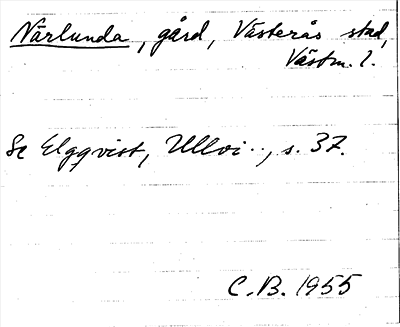 Närlunda, gård, Västerås stad,
Västm. l.
Se Elgqvist, Ullvi.., s. 37.
C.B. 1955